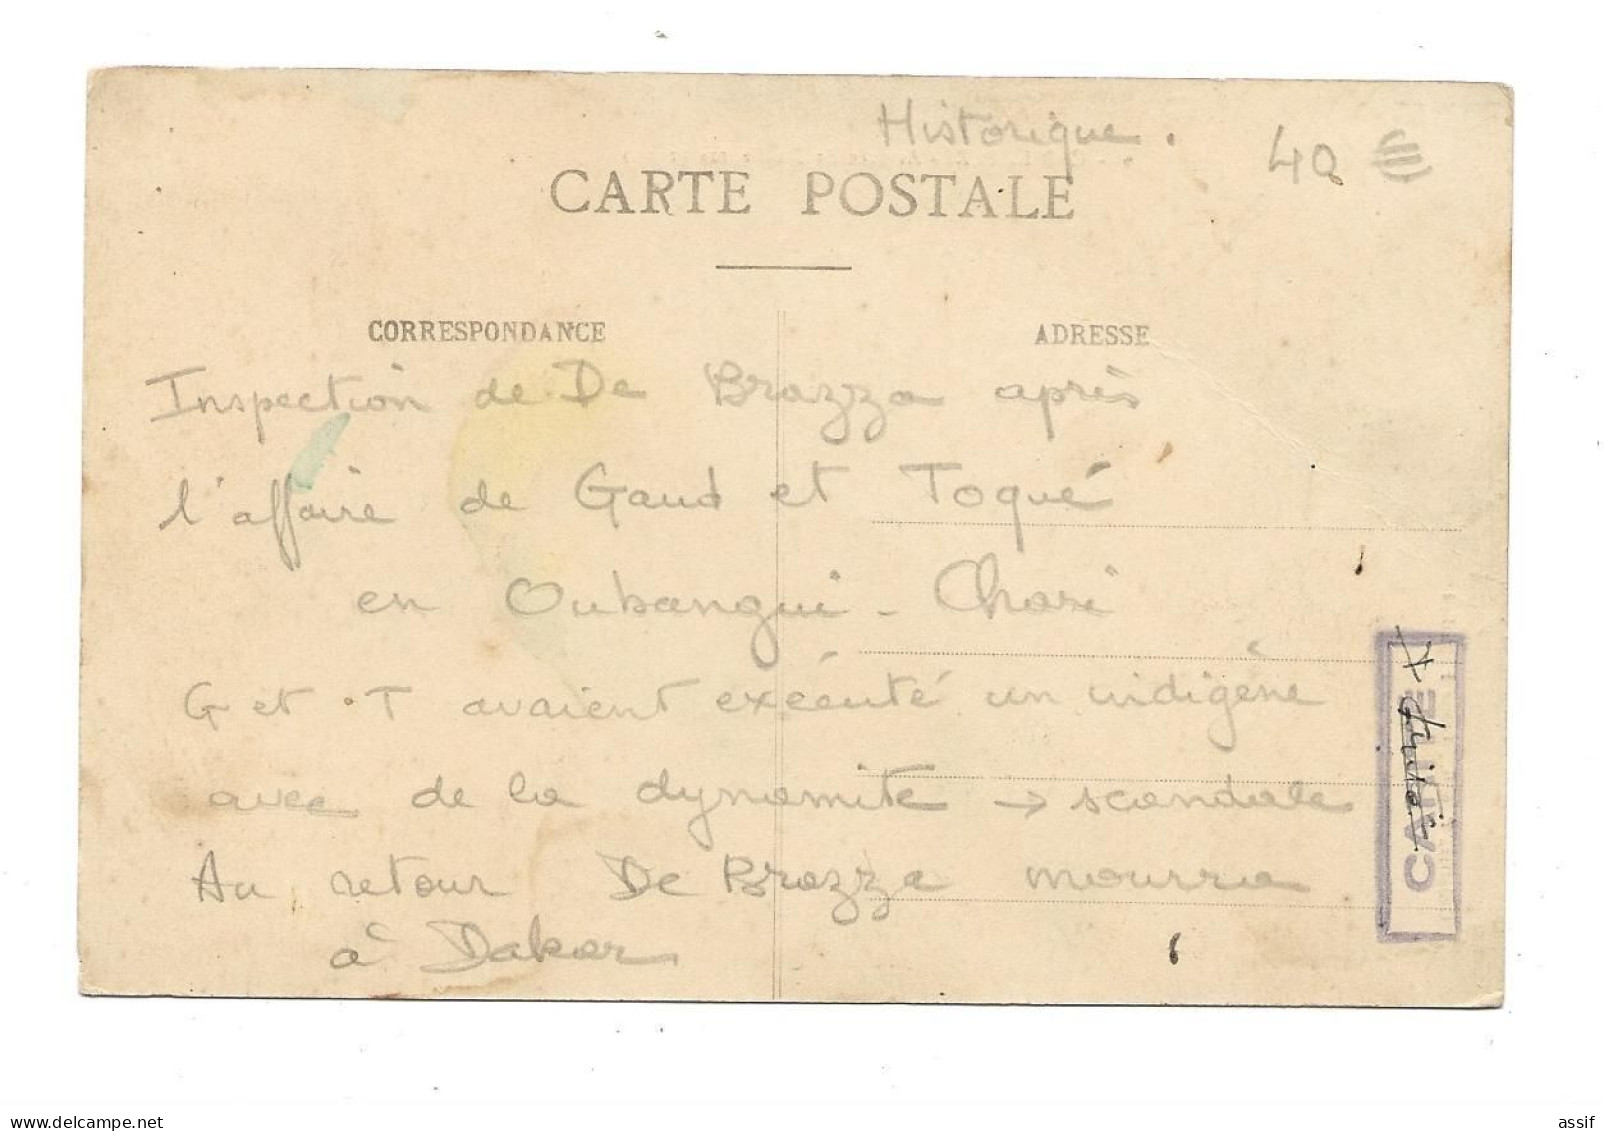 Historique.
40 €
CARTE POSTALE
CORRESPONDANCE
ADRESSE
Inspection de De Brazza après
l'affaire de Gaud et Toqué
en Oubangui - Chari
G et T avaient exécuté un indigène
avec de la dynamite → scandale
Au retour De Brazza mourra
à Dakar
assif